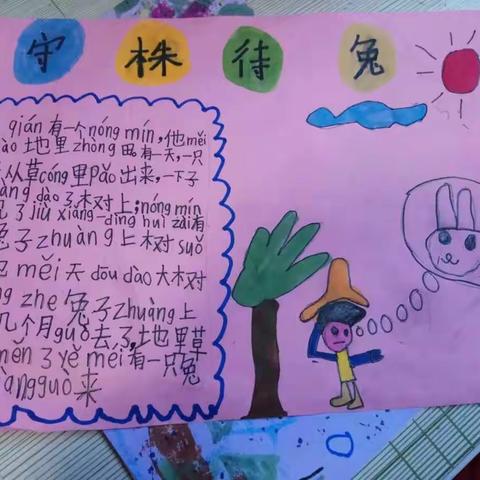 守株待兔
qián有一个nóng mín,他měi
ào地里zhòng田。有一天,一只
从草cóng里pǎo出来,一下子
àng dào了木对上;nóng mín
了jiù xiǎng一dìng huì zài有
兔子zhuàng上木对 suǒ
měi天dōu dào大木对
zhe兔子zhuàng上
几个月guò去了,地里草
mǎn了yě méi有一只兔
àng guò来